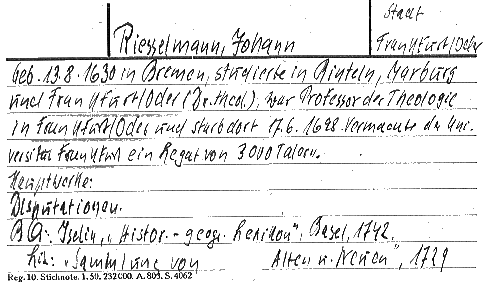 Stadt
Riesselmann, Johann Frankfurt/Oder
geb. 13.8.1630 in Bremen, studierte in Rinteln, Marburg
und Frankfurt/Oder (Dr. theol.), war Professor der Theologie
in Frankfurt/Oder und starb dort 17.6.1698. Vermachte der Uni-
versität Frankfurt ein Legat von 3000 Talern.
Hauptwerke:
Disputationen.
BQ: Iselin, „Histor.-geogr. Lexikon", Basel, 1742.
Lit: „Sammlung von Alten u. Neuen", 1729
Reg. 10. Stichnote. 1. 50. 232000. A. 809. S. 4062